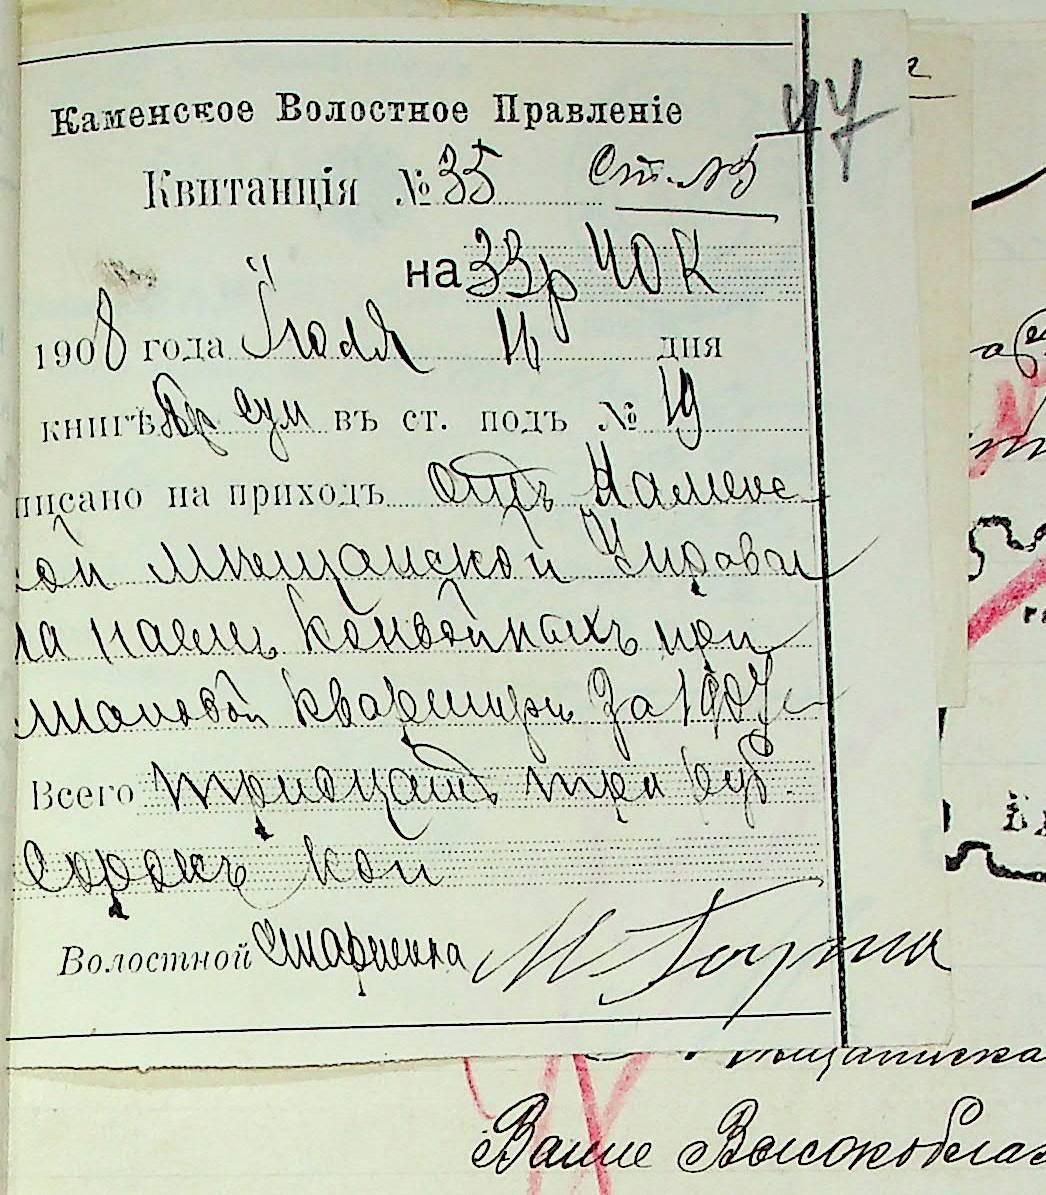 47
Каменское Волостное Правленіе
Квитанція № 35
на 33 р 40 К
1908 года Іюля 16 дня
книгѣ пер сум въ ст. подъ № 19
писано на приходъ отъ Каменс
кой мѣщанской Управы
на наемъ конвойныхъ при
становой квартиры за 1907 г
Всего тридцать три руб.
сорокъ коп
Волостной Старшина
Ваше Высокоблаг